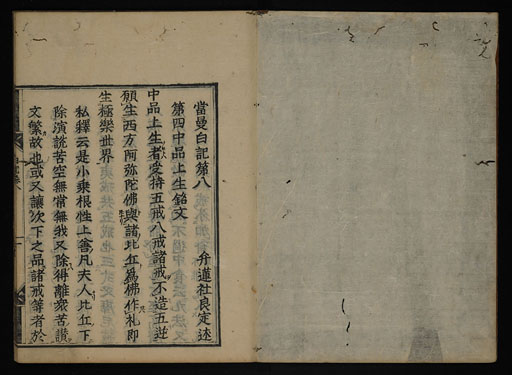 當曼白記第八
弁蓮社良定述
第四中品上生銘文
中品上生者受持五戒八戒諸戒不造五逆
願生西方阿弥陀佛與諸比丘為佛作礼即
生極樂世界
私釋云是小乗根性上善凡夫人比丘下
除演説苦空無常無我又除得離衆苦讃
文繁故也或又讓次下之品諸戒等者於